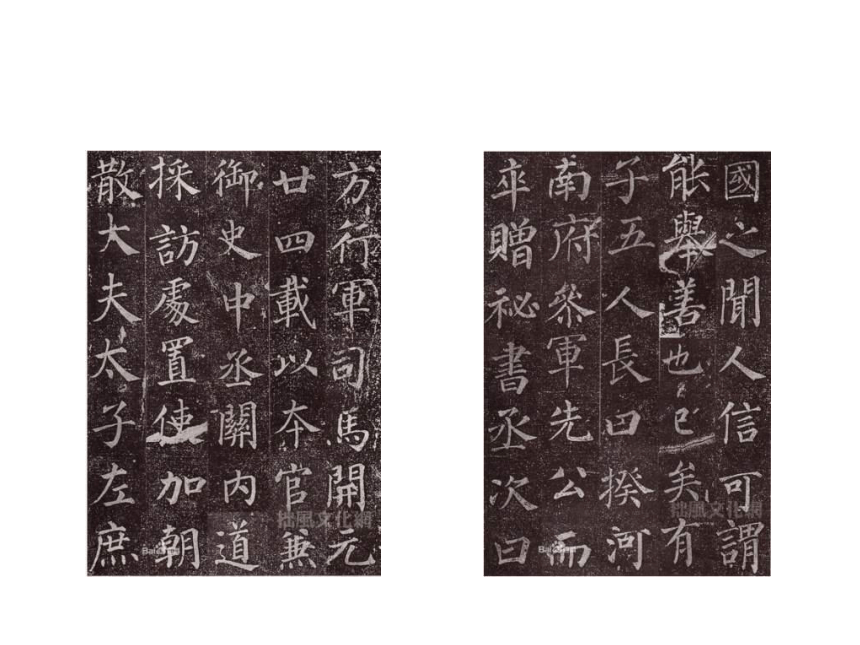 國之聞人信可謂
能舉善也已矣有
子五人長曰揆河
南府叅軍先公而
卒贈祕書丞次曰
方行軍司馬開元
廿四載以本官兼
御史中丞關內道
採訪處置使加朝
散大夫太子左庶
拙風文化網
拙風文化網